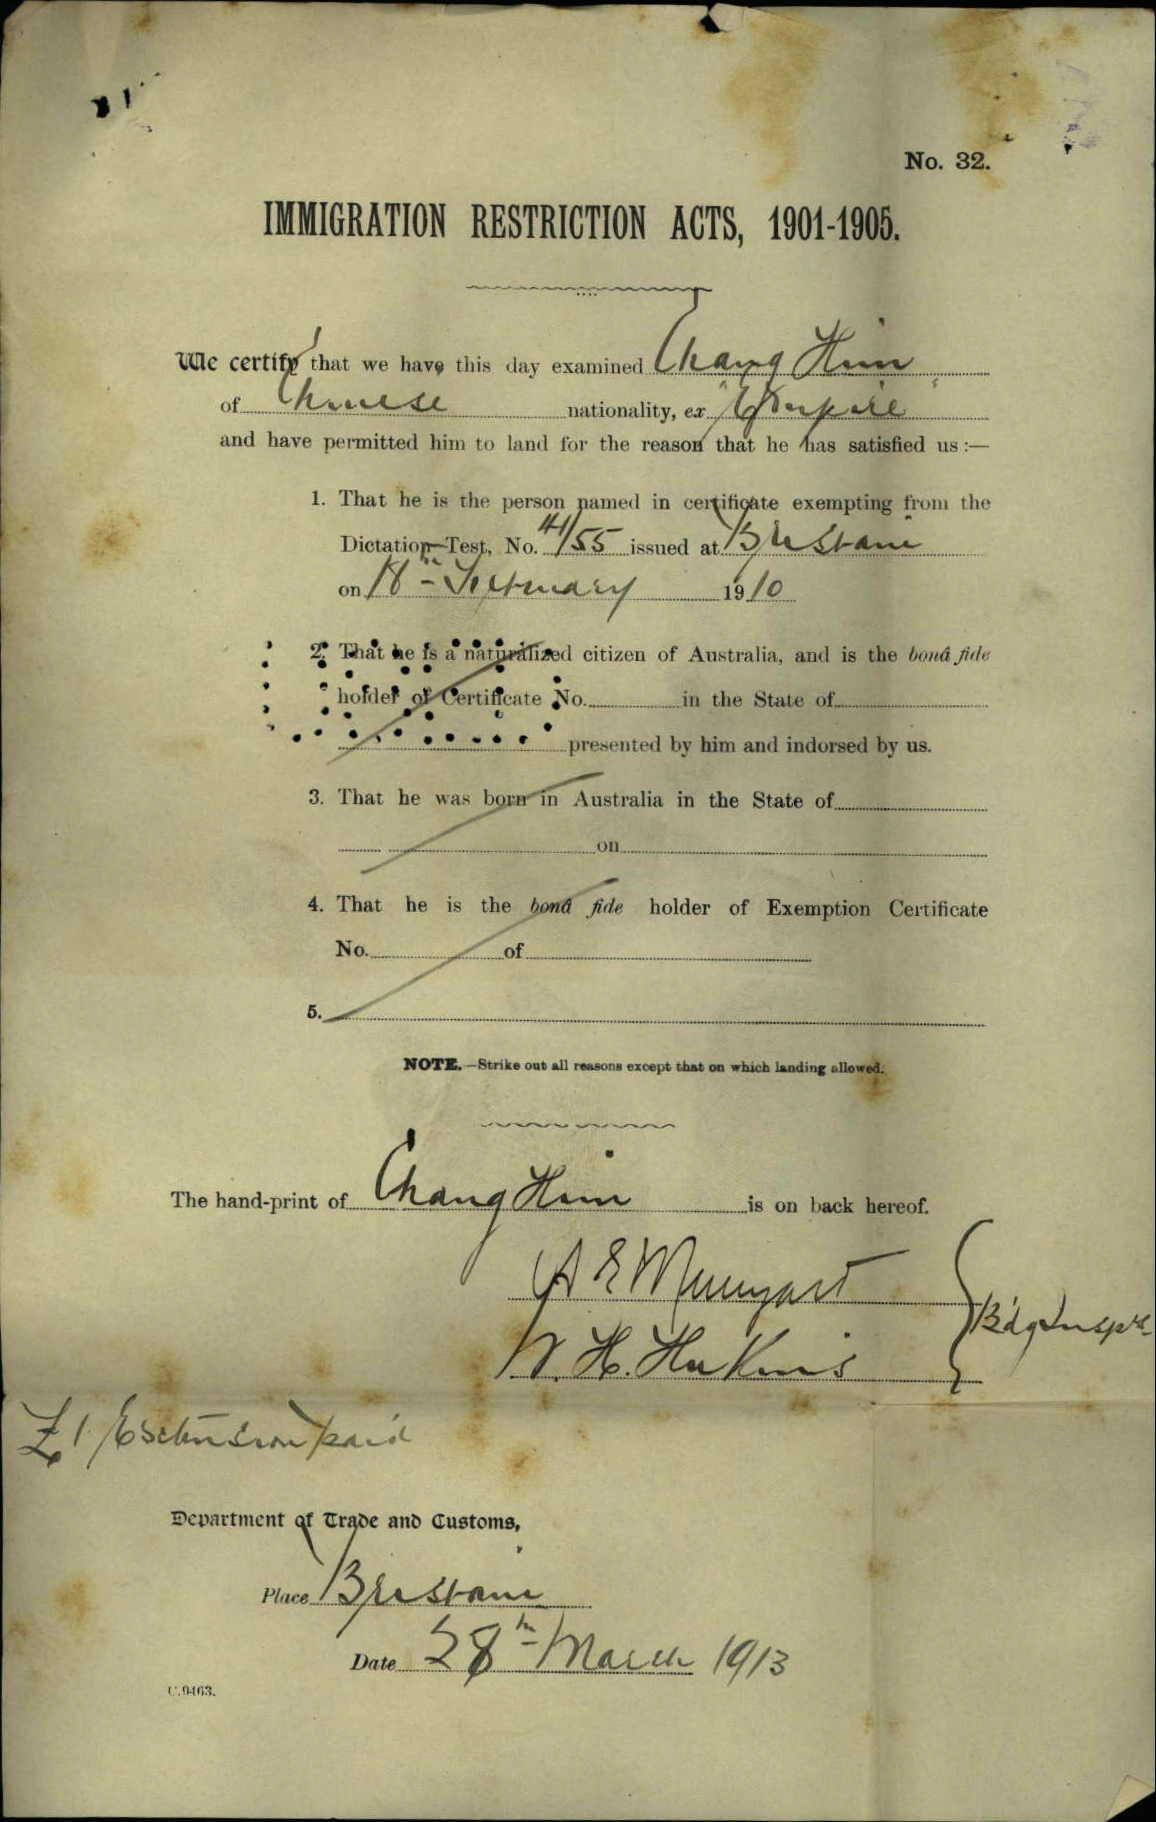 No. 32.
IMMIGRATION RESTRICTION ACTS, 1901-1905.
We certify that we have this day examined Chang Him
of Chinese nationality, ex "Empire"
and have permitted him to land for the reason that he has satisfied us :—
1. That he is the person named in certificate exempting from the
Dictation Test, No. 41/55 issued at Brisbane
on 18th February 1910
2. That he is a naturalized citizen of Australia, and is the bonâ fide
holder of Certificate No. in the State of
presented by him and indorsed by us.
3. That he was born in Australia in the State of
on
4. That he is the bonâ fide holder of Exemption Certificate
No. of
5.
NOTE.—Strike out all reasons except that on which landing allowed.
The hand-print of Chang Him is on back hereof.
A E
W. H.
£1 Extension paid
Department of Trade and Customs,
Place Brisbane
Date 28th March 1913
C.9463.